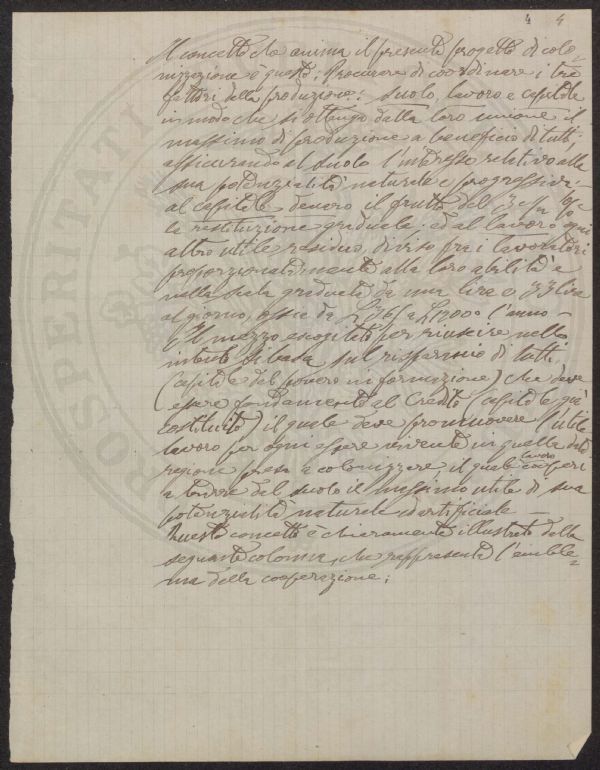 4 4
Il concetto che anima il presente progetto di colo=
nizzazione è questo: Procurare di coordinare i tre
fattori della produzione: Suolo, lavoro e capitale
in modo che si ottenga dalla loro unione il
massimo di produzione a beneficio di tutti,
assicurando al suolo l'interesse relativo alla
sua potenzialità naturale e progressiva:
al capitale denaro il frutto del 3 %
la restituzione graduale, ed al lavoro ogni
altro utile residuo, diviso fra i lavoratori
proporzionatamente alla loro abilità e
nulla scala graduata da una lira a 33 lire
al giorno, ossia da £ 365 a £ 12000 l'anno —
Il mezzo escogitato per riuscire nello
intento si basa sul risparmio di tutti
(capitale del povero in formazione) che deve
essere fondamento al Credito (capitale già
costituito) il quale deve promuovere l'utile
lavoro per ogni essere vivente in quella data
regione presa a colonizzare il quale lavoro cooperi
a rendere del suolo il massimo utile di sua
potenzialità naturale ed artificiale —
Questo concetto è chiaramente illustrato dalla
seguente colonna, che rappresenta l'emble=
ma della cooperazione:
PROSPERITATI